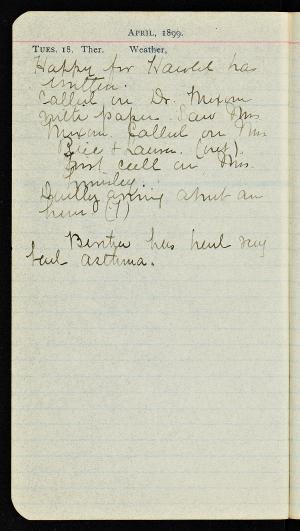 APRIL, 1899.
TUES. 18. Ther. Weather,
Happy for Harold has
written.
Called on Dr. Mixom
with paper. Saw Mrs
Mixom. Called on Mrs
Rice & Laura. (out).
first call on Mrs.
about an
hour (?)
has had very
bad asthma.